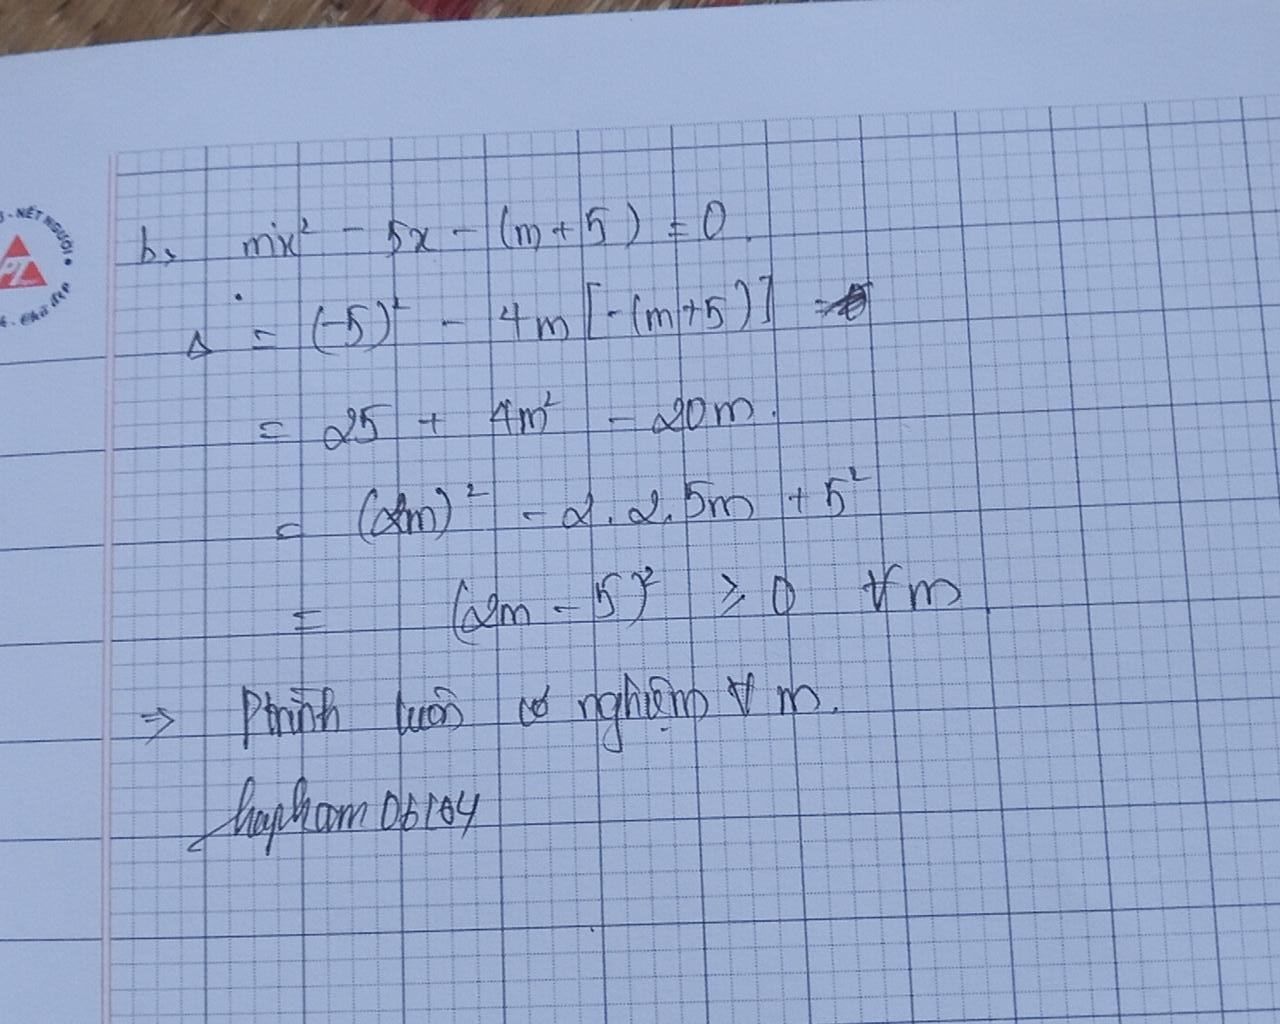 b, mx² - 5x - (m+5) = 0
Δ = (-5)² - 4m[-(m+5)]
= 25 + 4m² - 20m.
= (2m)² - 2.2.5m + 5²
= (2m - 5)² ≥ 0 ∀m
⇒ Ptrình luôn có nghiệm ∀ m.
hapham06104
NÉT NGƯỜI
PL